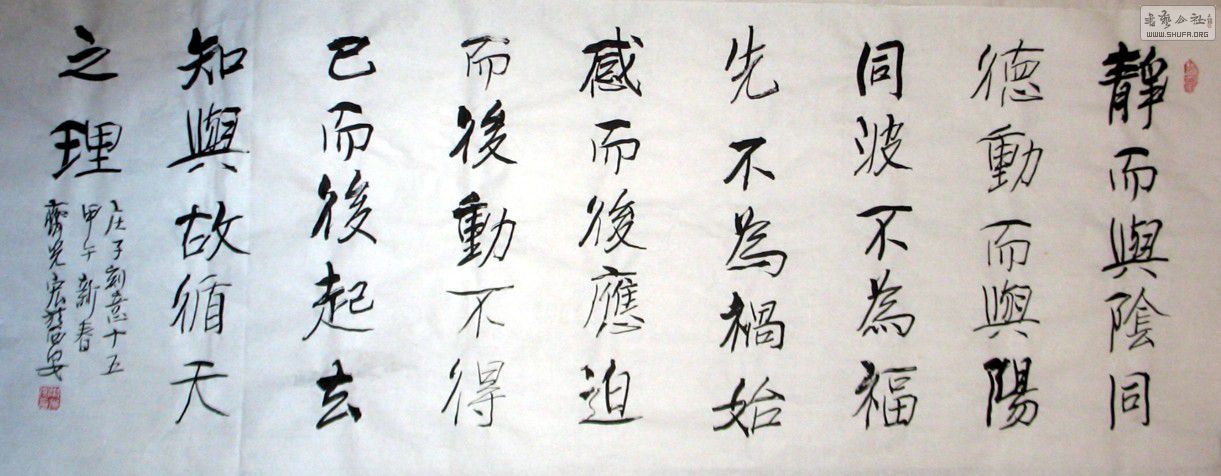 靜而與陰同
德動而與陽
同波不為福
先不為禍始
感而後應迫
而後動不得
已而後起去
知與故循天
之理
庄子刻意十五
甲午新春
書藝公社
WWW.SHUFA.ORG